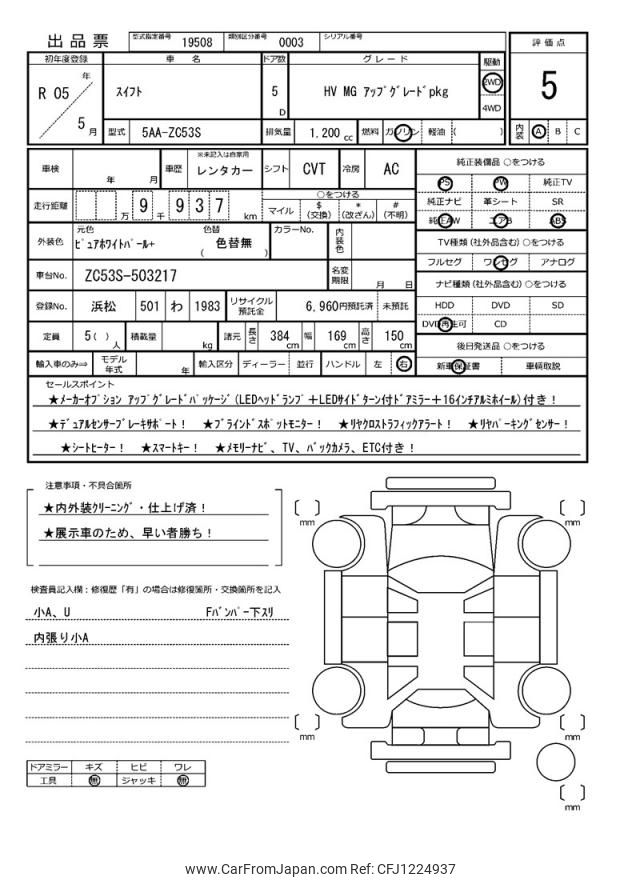 出品票 型式指定番号 19508 類別区分番号 0003 シリアル番号
評価点
5
内装 A B C
初年度登録 車名 ドア数 グレード 駆動
R 05 年 5 月 スイフト 5 D HV MG アップグレードpkg 2WD 4WD
型式 5AA-ZC53S 排気量 1.200 cc 燃料 ガソリン 軽油 ( )
車検 年 月 車歴 ※未記入は自家用 レンタカー シフト CVT 冷房 AC
走行距離 万 9 千 9 3 7 km ○をつける
マイル $(交換) *(改ざん) #(不明)
外装色 元色 ピュアホワイトパール+ 色替 ( 色替無 ) カラーNo. 内装色
車台No. ZC53S-503217 名変期限 月 日
登録No. 浜松 501 わ 1983 リサイクル預託金 6,960円預託済 未預託
定員 5( )人 積載量 kg 諸元 長さ 384 cm 幅 169 cm 高さ 150 cm
輸入車のみ⇒ モデル年式 年 輸入区分 ディーラー 並行 ハンドル 左 右
純正装備品 ○をつける
PS PW 純正TV
純正ナビ 革シート SR
純正AW エアB ABS
TV種類 (社外品含む) ○をつける
フルセグ ワンセグ アナログ
ナビ種類 (社外品含む) ○をつける
HDD DVD SD
DVD再生可 CD
後日発送品 ○をつける
新車保証書 車輌取説
セールスポイント
★メーカーオプション アップグレードパッケージ(LEDヘッドランプ+LEDサイドターン付ドアミラー+16インチアルミホイール)付き!
★デュアルセンサーブレーキサポート! ★ブラインドスポットモニター! ★リヤクロストラフィックアラート! ★リヤパーキングセンサー!
★シートヒーター! ★スマートキー! ★メモリーナビ、TV、バックカメラ、ETC付き!
注意事項・不具合箇所
★内外装クリーニング・仕上げ済!
★展示車のため、早い者勝ち!
検査員記入欄:修復歴「有」の場合は修復箇所・交換箇所を記入
小A、U Fバンパー下スリ
内張り小A
ドアミラー キズ ヒビ ワレ
工具 無 ジャッキ 無
[ ] mm
[ ] mm
[ ] mm
[ ] mm
[ ] mm
www.CarFromJapan.com Ref: CFJ1224937